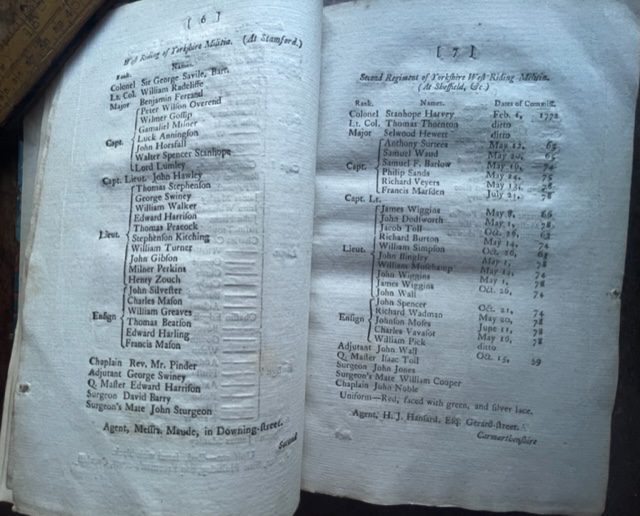 [ 6 ]
West Riding of Yorkshire Militia. (At Stamford.)
Rank. Names.
Colonel Sir George Savile, Bart.
Lt. Col. William Radcliffe
Major Benjamin Ferrand
Peter Wilson Overend
Wilmer Gossip
Gamaliel Milner
Luck Annington
Capt. John Horsfall
Walter Spencer Stanhope
Lord Lumley
Capt. Lieut. John Hawley
Thomas Stephenson
George Swiney
William Walker
Edward Harrison
Thomas Peacock
Lieut. Stephenson Kitching
William Turner
John Gibson
Milner Perkins
Henry Zouch
John Silvester
Charles Mason
Ensign William Greaves
Thomas Beatson
Edward Harling
Francis Mason
Chaplain Rev. Mr. Pinder
Adjutant George Swiney
Q. Master Edward Harrison
Surgeon David Barry
Surgeon's Mate John Sturgeon
Agent, Messrs. Maude, in Downing-street.
Second
[ 7 ]
Second Regiment of Yorkshire West Riding Militia.
(At Sheffield, &c.)
Rank. Names. Dates of Commiss.
Colonel Stanhope Harvey Feb. 4, 1772
Lt. Col. Thomas Thornton ditto
Major Selwood Hewett ditto
Anthony Surtees May 12, 65
Samuel Waud May 20, 65
Samuel F. Barlow May 16,
Capt. Philip Sands May 24,
Richard Veyers May 13, 78
Francis Marsden July 21, 78
Capt. Lt.
James Wiggins May 8, 66
John Dodworth May 1, 78
Jacob Toll Oct. 26, 63
Richard Burton May 14, 74
Lieut. William Simpson Oct. 26, 63
John Bingley May 1, 78
William May 12, 74
John Wiggins May 1, 78
James Wiggins Oct. 26, 74
John Wall
John Spencer Oct. 21, 74
Richard Wadman May 20, 78
Ensign Johnson Moses June 11, 78
Charles Vavasor May 16, 78
William Pick ditto
Adjutant John Wall Oct. 15, 59
Q. Master Isaac Toll
Surgeon John Jones
Surgeon's Mate William Cooper
Chaplain John Noble
Uniform—Red, faced with green, and silver lace.
Agent, H. J. Hansard, Esq. Gerard-street.
Carmarthenshire